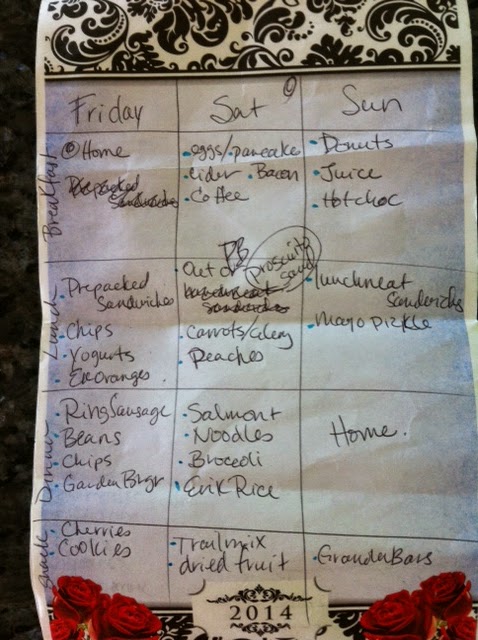 Friday
Sat
Sun
Breakfast
@Home
Prepacked
Sandwiches
• eggs/•pancake
• cider • Bacon
• Coffee
• Donuts
• Juice
• Hotchoc
Lunch
• Prepacked
Sandwiches
• Chips
• Yogurts
• Oranges
PB
Prosciutto
sand
• Out
• Carrots/celery
• Peaches
• lunchmeat
Sanderichs
• Mayo pickle
Dinner
• Ring Sausage
• Beans
• Chips
• Garden Brgr
• Salmont
• Noodles
• Brocoli
• Erik Rice
Home.
Snack
• Cherries
• Cookies
• Trailmix
• dried fruit
• GranolaBars
2014